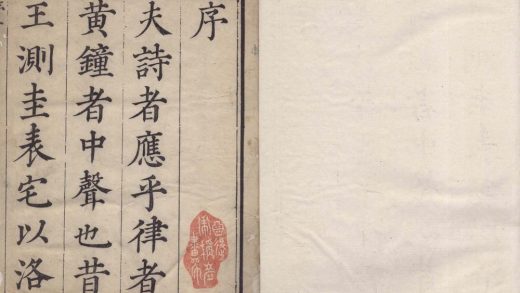 序
夫詩者應乎律者
黃鐘者中聲也昔
王測圭表宅以洛